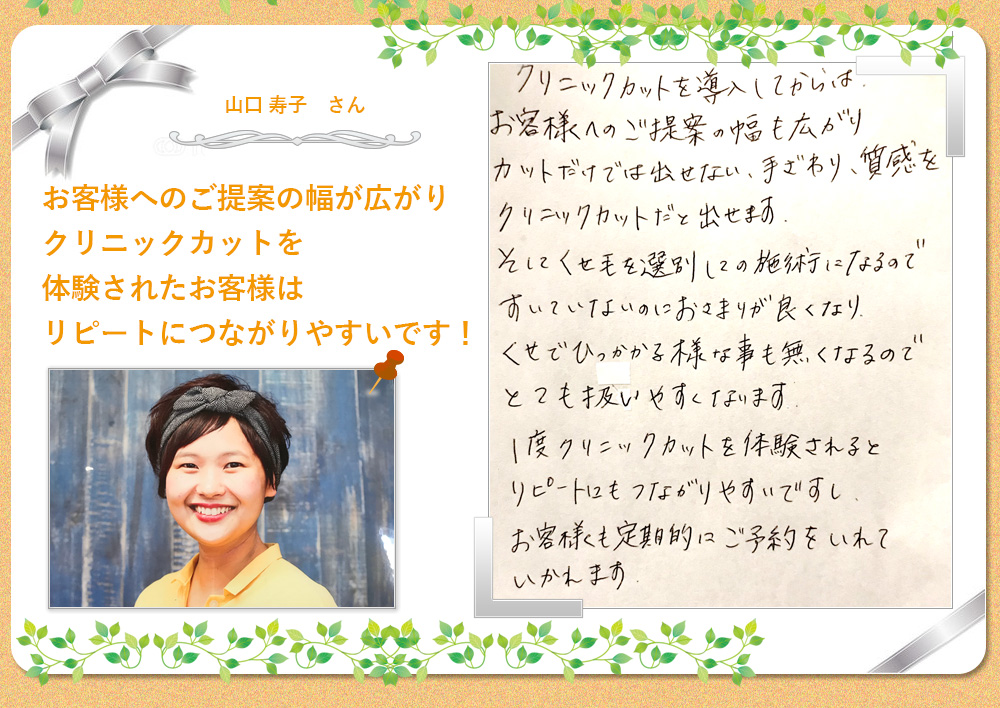 山口 寿子　さん
お客様へのご提案の幅が広がり
クリニックカットを
体験されたお客様は
リピートにつながりやすいです！
クリニックカットを導入してからは.
お客様へのご提案の幅も広がり
カットだけでは出せない、手ざわり、質感を
クリニックカットだと出せます.
そしてくせ毛を選別しての施術になるので
すいていないのにおさまりが良くなり.
くせでひっかかる様な事も無くなるので
とても扱いやすくなります.
1度クリニックカットを体験されると
リピートにもつながりやすいですし.
お客様も定期的にご予約をいれて
いかれます.